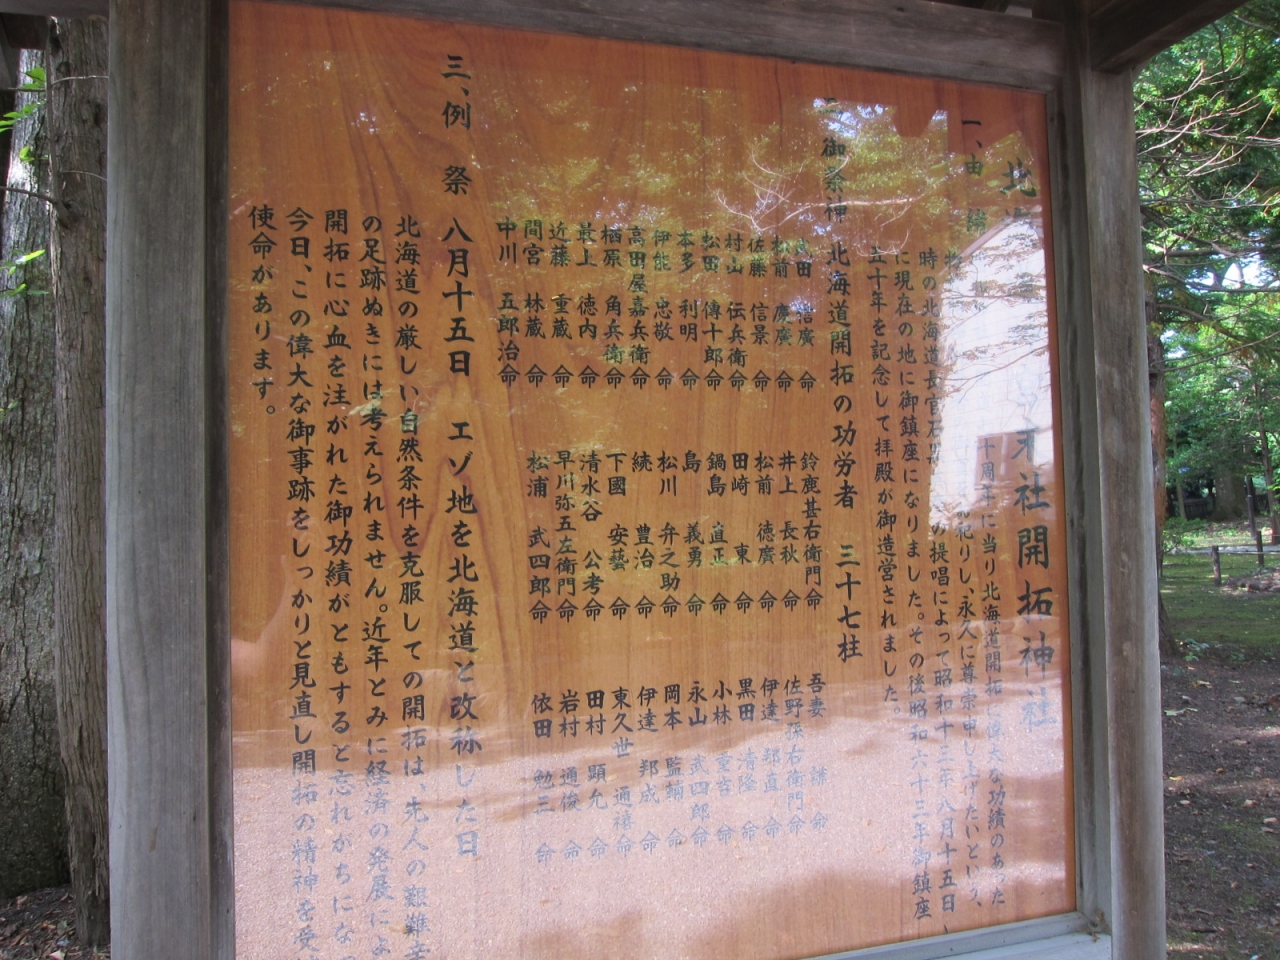 北 社開拓神社
一、由 緒
十周年に当り北海道開拓に偉大な功績のあった
祀りし、永久に尊崇申し上げたいという、
時の北海道長官石 の提唱によって昭和十三年八月十五日、
に現在の地に御鎮座になりました。その後昭和六十三年御鎮座
五十年を記念して拝殿が御造営されました。
御祭神 北海道開拓の功労者 三十七柱
廣命 鈴鹿甚右衛門命 吾妻 謙命
松前 慶廣命 井上 長秋命 佐野孫右衛門命
佐藤 信景命 松前 徳廣命 伊達 邦直命
村山 伝兵衛命 田崎 東命 黒田 清隆命
松田 傳十郎命 鍋島 直正命 小林 重吉命
本多 利明命 島 義勇命 永山 武四郎命
伊能 忠敬命 松川 弁之助命 岡本 監輔命
高田屋嘉兵衛命 続 豊治命 伊達 邦成命
栖原 角兵衛命 下國 安藝命 東久世 通禧命
最上 徳内命 清水谷 公考命 田村 顕允命
近藤 重蔵命 早川弥五左衛門命 岩村 通俊命
間宮 林蔵命 松浦 武四郎命 依田 勉三命
中川 五郎治命
三、例 祭 八月十五日 エゾ地を北海道と改称した日
北海道の厳しい自然条件を克服しての開拓は、先人の艱難辛
の足跡ぬきには考えられません。近年とみに経済の発展によ
開拓に心血を注がれた御功績がともすると忘れがちにな
今日、この偉大な御事跡をしっかりと見直し開拓の精神を受
使命があります。